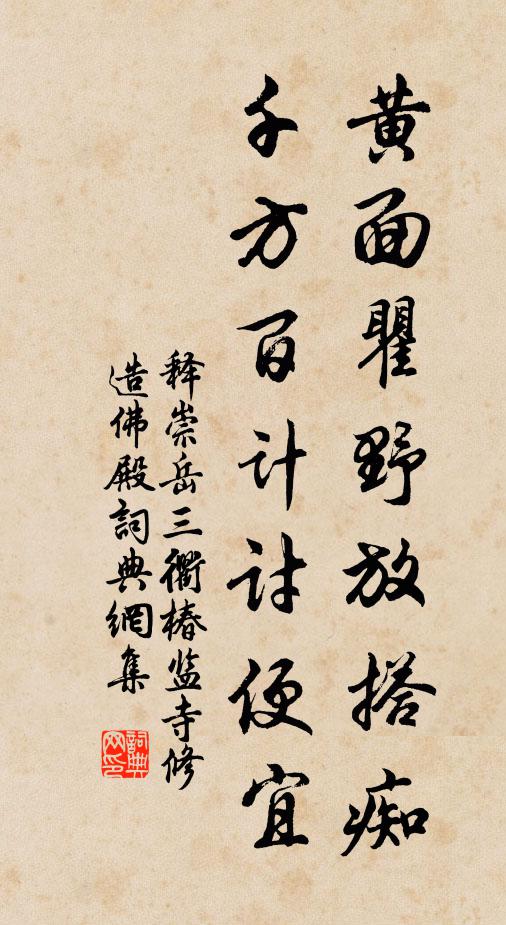 黄面瞿野放搭痴
千方百计討便宜
释崇岳三衢椿监寺修
造佛殿詞典網集
詞典
网印